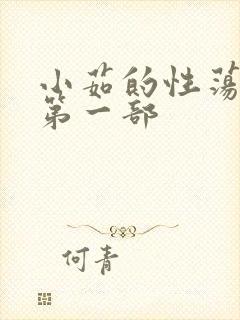 小茹的性荡
第一部
何青